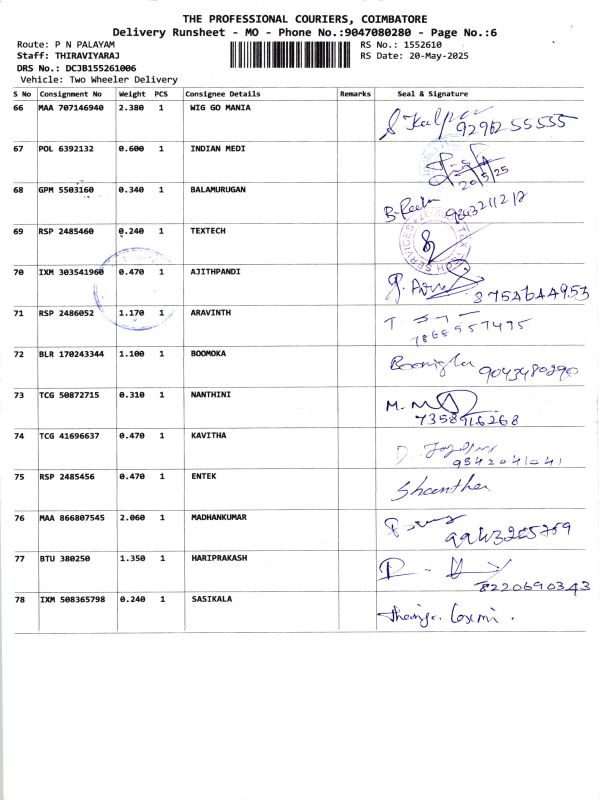 THE PROFESSIONAL COURIERS, COIMBATORE
Delivery Runsheet - MO - Phone No.:9047080280 - Page No.:6
Route: P N PALAYAM RS No.: 1552610
Staff: THIRAVIYARAJ RS Date: 20-May-2025
DRS No.: DCJB155261006
Vehicle: Two Wheeler Delivery
S No Consignment No Weight PCS Consignee Details Remarks Seal & Signature
66 MAA 707146940 2.380 1 WIG GO MANIA
67 POL 6392132 0.600 1 INDIAN MEDI
20/5/25
68 GPM 5503160 0.340 1 BALAMURUGAN
69 RSP 2485460 0.240 1 TEXTECH
70 IXM 303541960 0.470 1 AJITHPANDI
71 RSP 2486052 1.170 1 ARAVINTH
7868957495
72 BLR 170243344 1.100 1 BOOMOKA
9043480290
73 TCG 50872715 0.310 1 NANTHINI
7358916268
74 TCG 41696637 0.470 1 KAVITHA
9342041041
75 RSP 2485456 0.470 1 ENTEK
Shanthi
76 MAA 866807545 2.060 1 MADHANKUMAR
77 BTU 380250 1.350 1 HARIPRAKASH
8220690343
78 IXM 508365798 0.240 1 SASIKALA